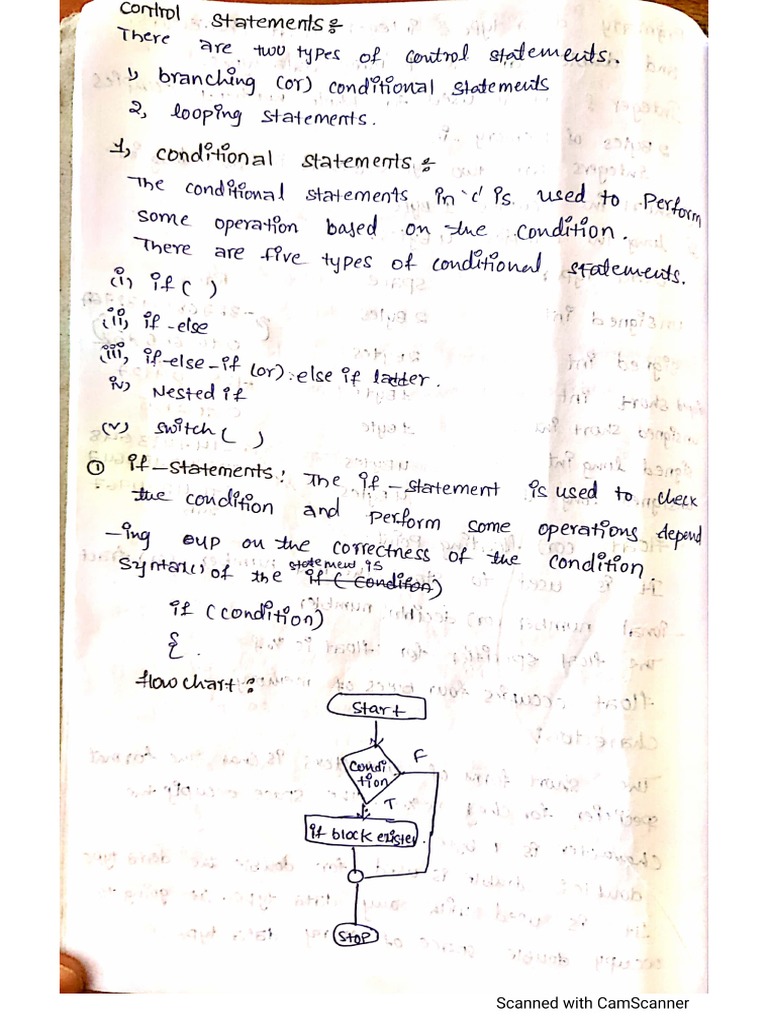 Control Statements:
There are two types of control statements.
1, branching (or) conditional statements
2, looping statements.
1, conditional statements:
The conditional statements in 'c' is used to perform
some operation based on the condition.
There are five types of conditional statements.
(i) if ( )
(ii) if-else
(iii) if-else-if (or) else if ladder.
iv) Nested if
(v) switch ( )
① if-statements: The if-statement is used to check
the condition and perform some operations depend
-ing on the correctness of the condition.
Syntax of the statement is
if (condition)
if (condition)
{
flow chart:
Start
condi
tion
F
T
if block
Stop
Scanned with CamScanner